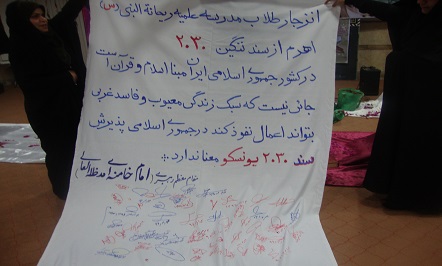 انزجار طلاب مدرسه علمیه ریحانة النبی (س)
اهرم از سند ننگین ۲۰۳۰
در کشور جمهوری اسلامی ایران مبنا اسلام و قرآن است
جائی نیست که سبک زندگی معیوب و فاسد غربی
بتواند اعمال نفوذ کند در جمهوری اسلامی پذیرش
سند ۲۰۳۰ یونسکو معنا ندارد
مقام معظم رهبری امام خامنه ای